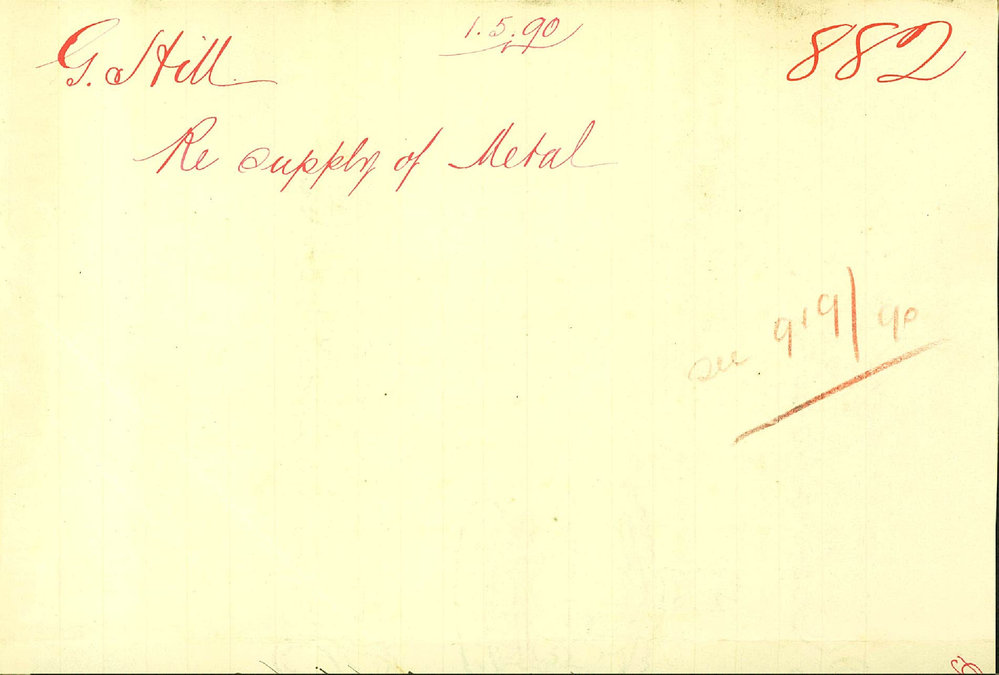 G. Hill
1.5.90
882
Re supply of Metal
see 919/90